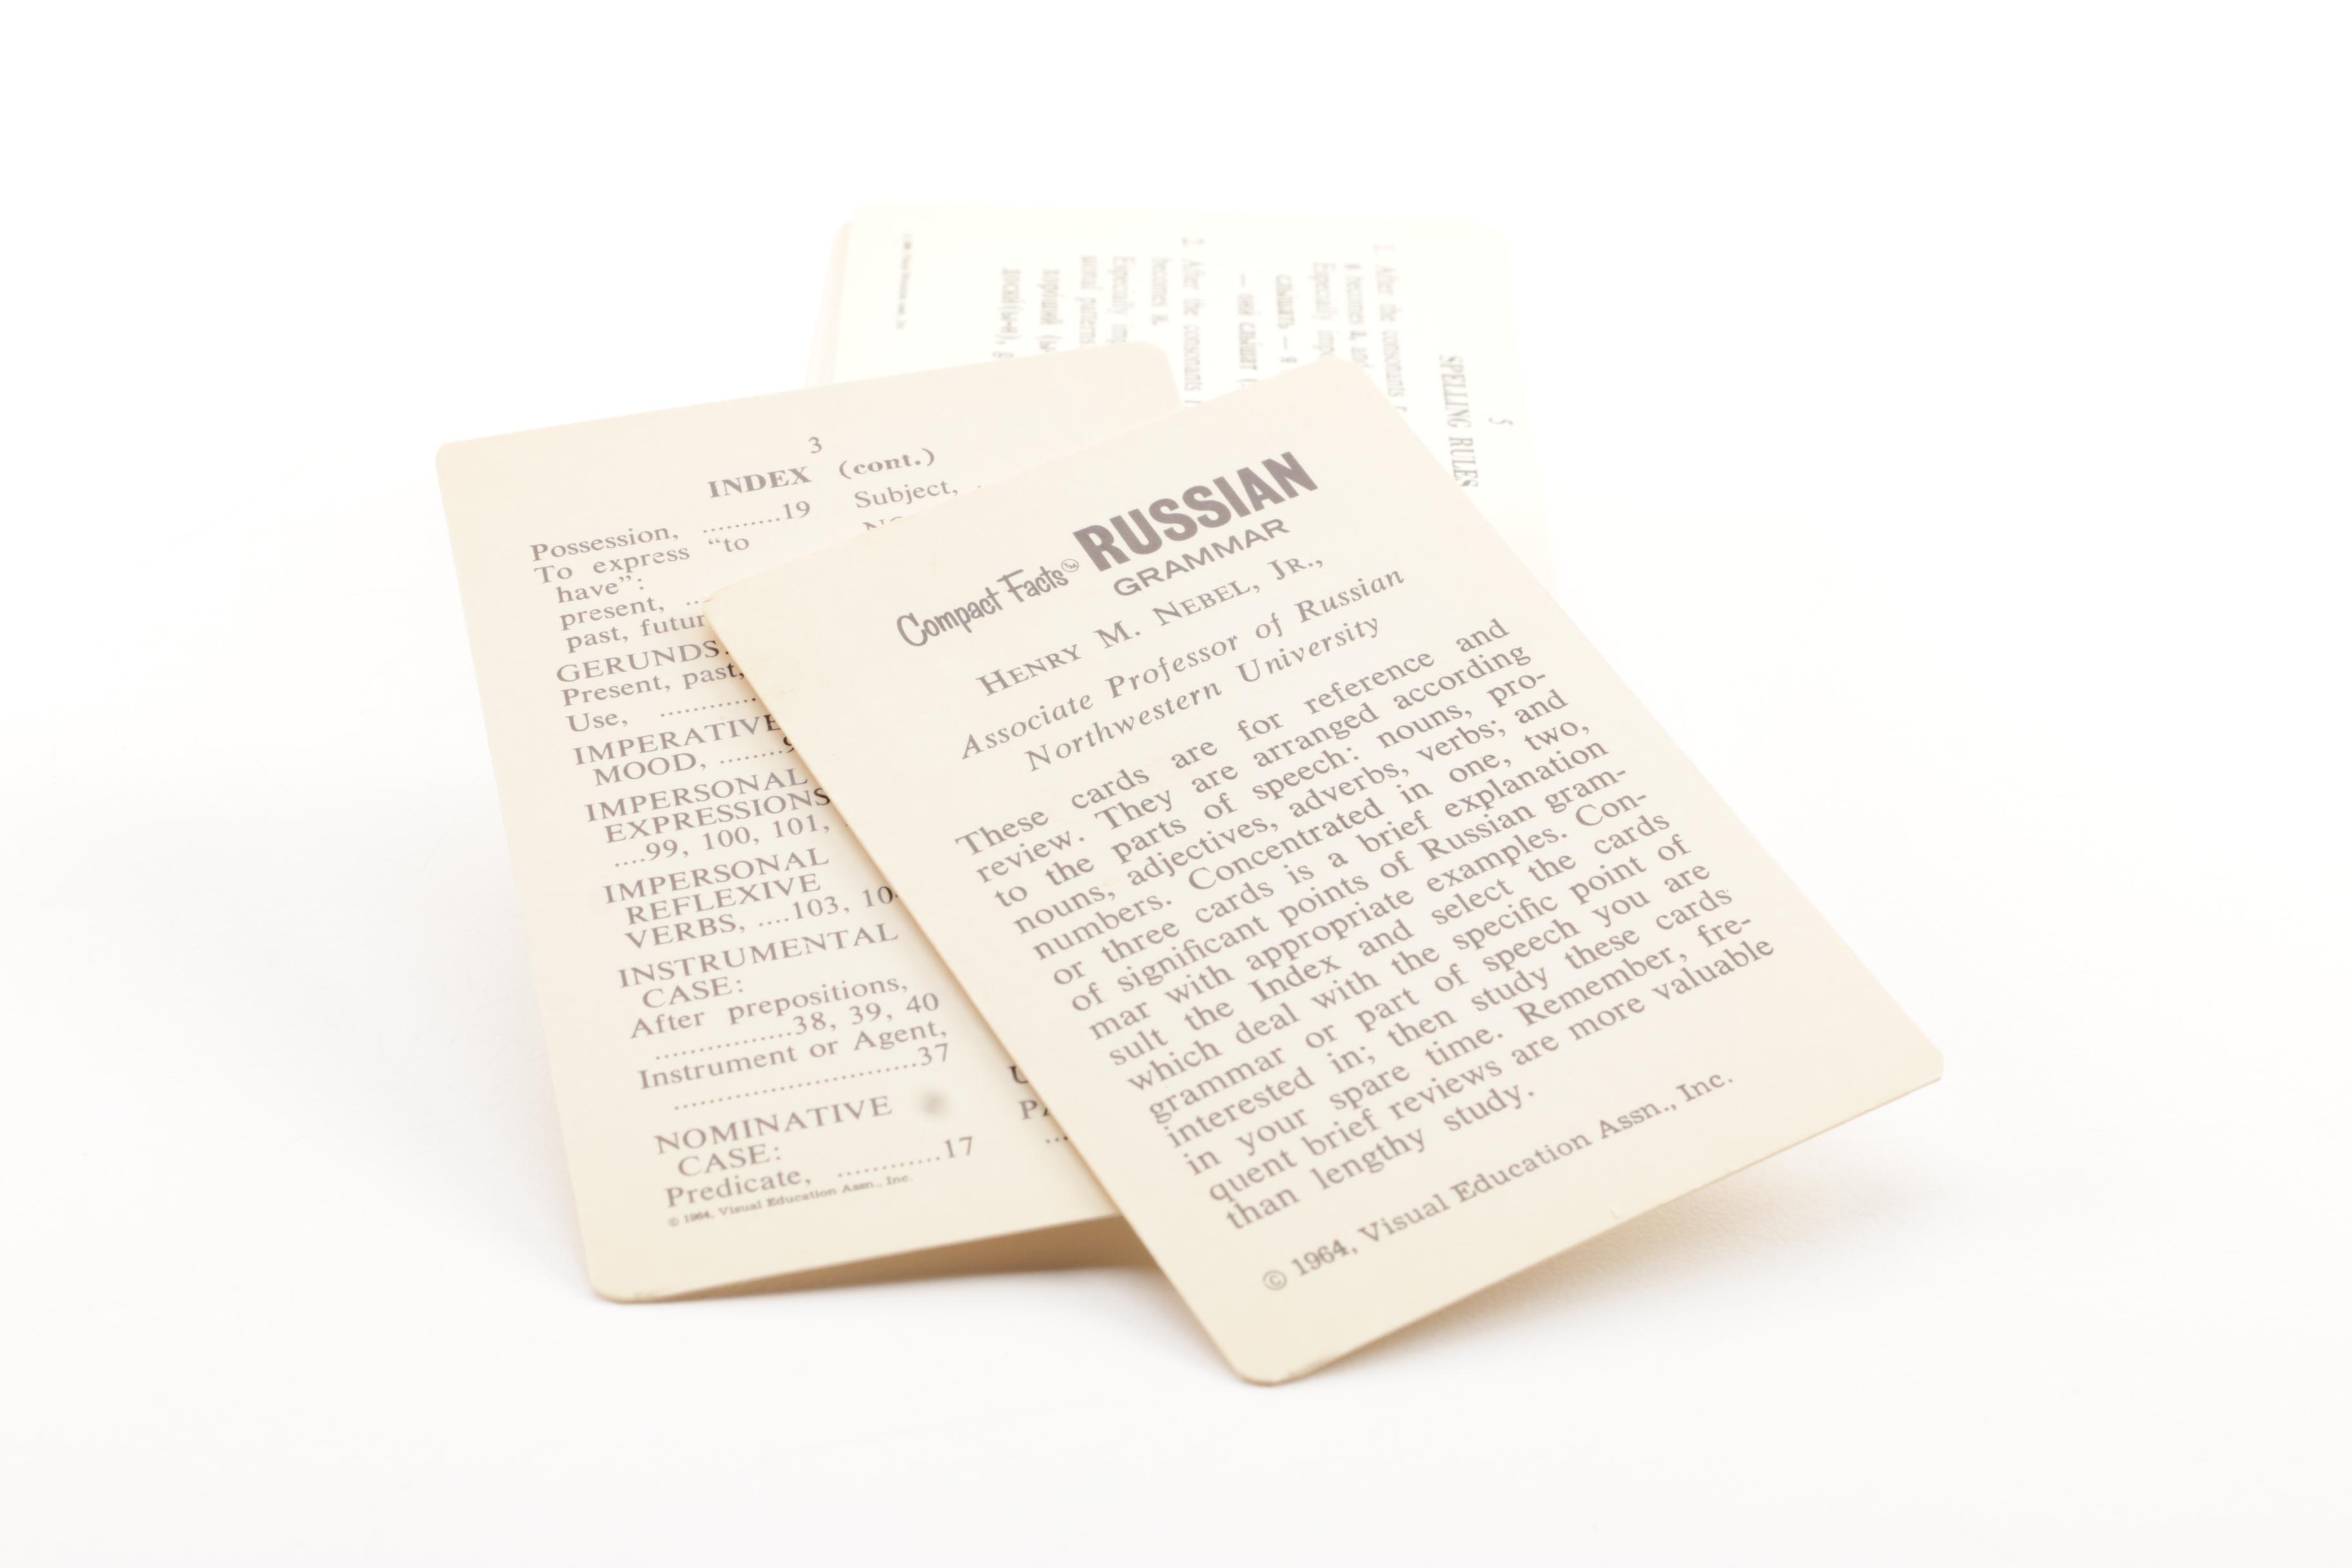 Compact Facts RUSSIAN
GRAMMAR
HENRY M. NEBEL, JR.,
Associate Professor of Russian
Northwestern University
These cards are for reference and
review. They are arranged according
to the parts of speech: nouns, pro-
nouns, adjectives, adverbs, verbs; and
numbers. Concentrated in one, two,
or three cards is a brief explanation
of significant points of Russian gram-
mar with appropriate examples. Con-
sult the Index and select the cards
which deal with the specific point of
grammar or part of speech you are
interested in; then study these cards
in your spare time. Remember, fre-
quent brief reviews are more valuable
than lengthy study.
© 1964, Visual Education Assn., Inc.
3
INDEX (cont.)
Possession, ..........19
To express "to
have":
present, ..
past,
GERUNDS
Present, past,
Use, ............
IMPERATIVE
MOOD, ........9
IMPERSONAL
EXPRESSIONS
....99, 100, 101,
IMPERSONAL
REFLEXIVE
VERBS, ....103,
INSTRUMENTAL
CASE:
After prepositions,
.................38, 39, 40
Instrument or Agent,
..............................37
NOMINATIVE
CASE:
Predicate, ............17
© 1964, Visual Education Assn., Inc.
Subject,
5
SPELLING RULES
1 After the consonants
я becomes а, and
Especially
слышать – я
– они слышат
2 After the consonants
becomes и.
Especially
patterns
хороший